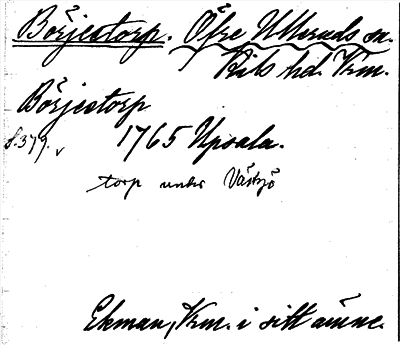 Börjestorp. Öfre Ulleruds sn.
Kils hd. Vrm.
Börjestorp
s. 379. v
1765 Upsala.
torp under Västsjö
Ekman, Vrm. i sitt ämne.